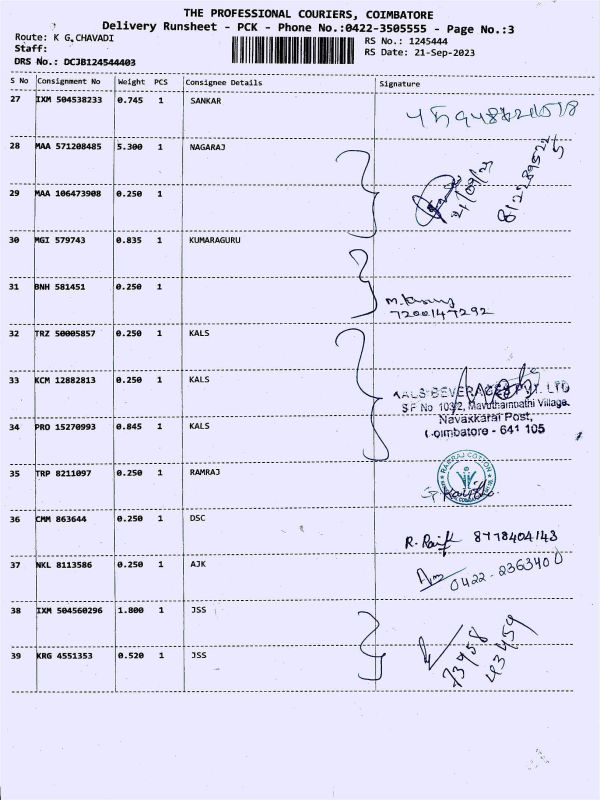 THE PROFESSIONAL COURIERS, COIMBATORE
Delivery Runsheet - PCK - Phone No.:0422-3505555 - Page No.:3
Route: K G CHAVADI
RS No.: 1245444
Staff:
RS Date: 21-Sep-2023
DRS No.: DCJB124544403
S No Consignment No Weight PCS Consignee Details Signature
27 IXM 504538233 0.745 1 SANKAR
28 MAA 571208485 5.300 1 NAGARAJ
21/09/23
29 MAA 106473908 0.250 1
30 MGI 579743 0.835 1 KUMARAGURU
31 BNH 581451 0.250 1
7200147292
32 TRZ 50005857 0.250 1 KALS
33 KCM 12882813 0.250 1 KALS
KALS BEVERAGES PVT. LTD
SF No 103/2, Mavuthampathi Village.
Navakkarai Post,
Coimbatore - 641 105
34 PRO 15270993 0.845 1 KALS
35 TRP 8211097 0.250 1 RAMRAJ
RAMRAJ COTTON
36 CMM 863644 0.250 1 DSC
8778404143
37 NKL 8113586 0.250 1 AJK
0422-2363400
38 IXM 504560296 1.800 1 JSS
73958
43459
39 KRG 4551353 0.520 1 JSS